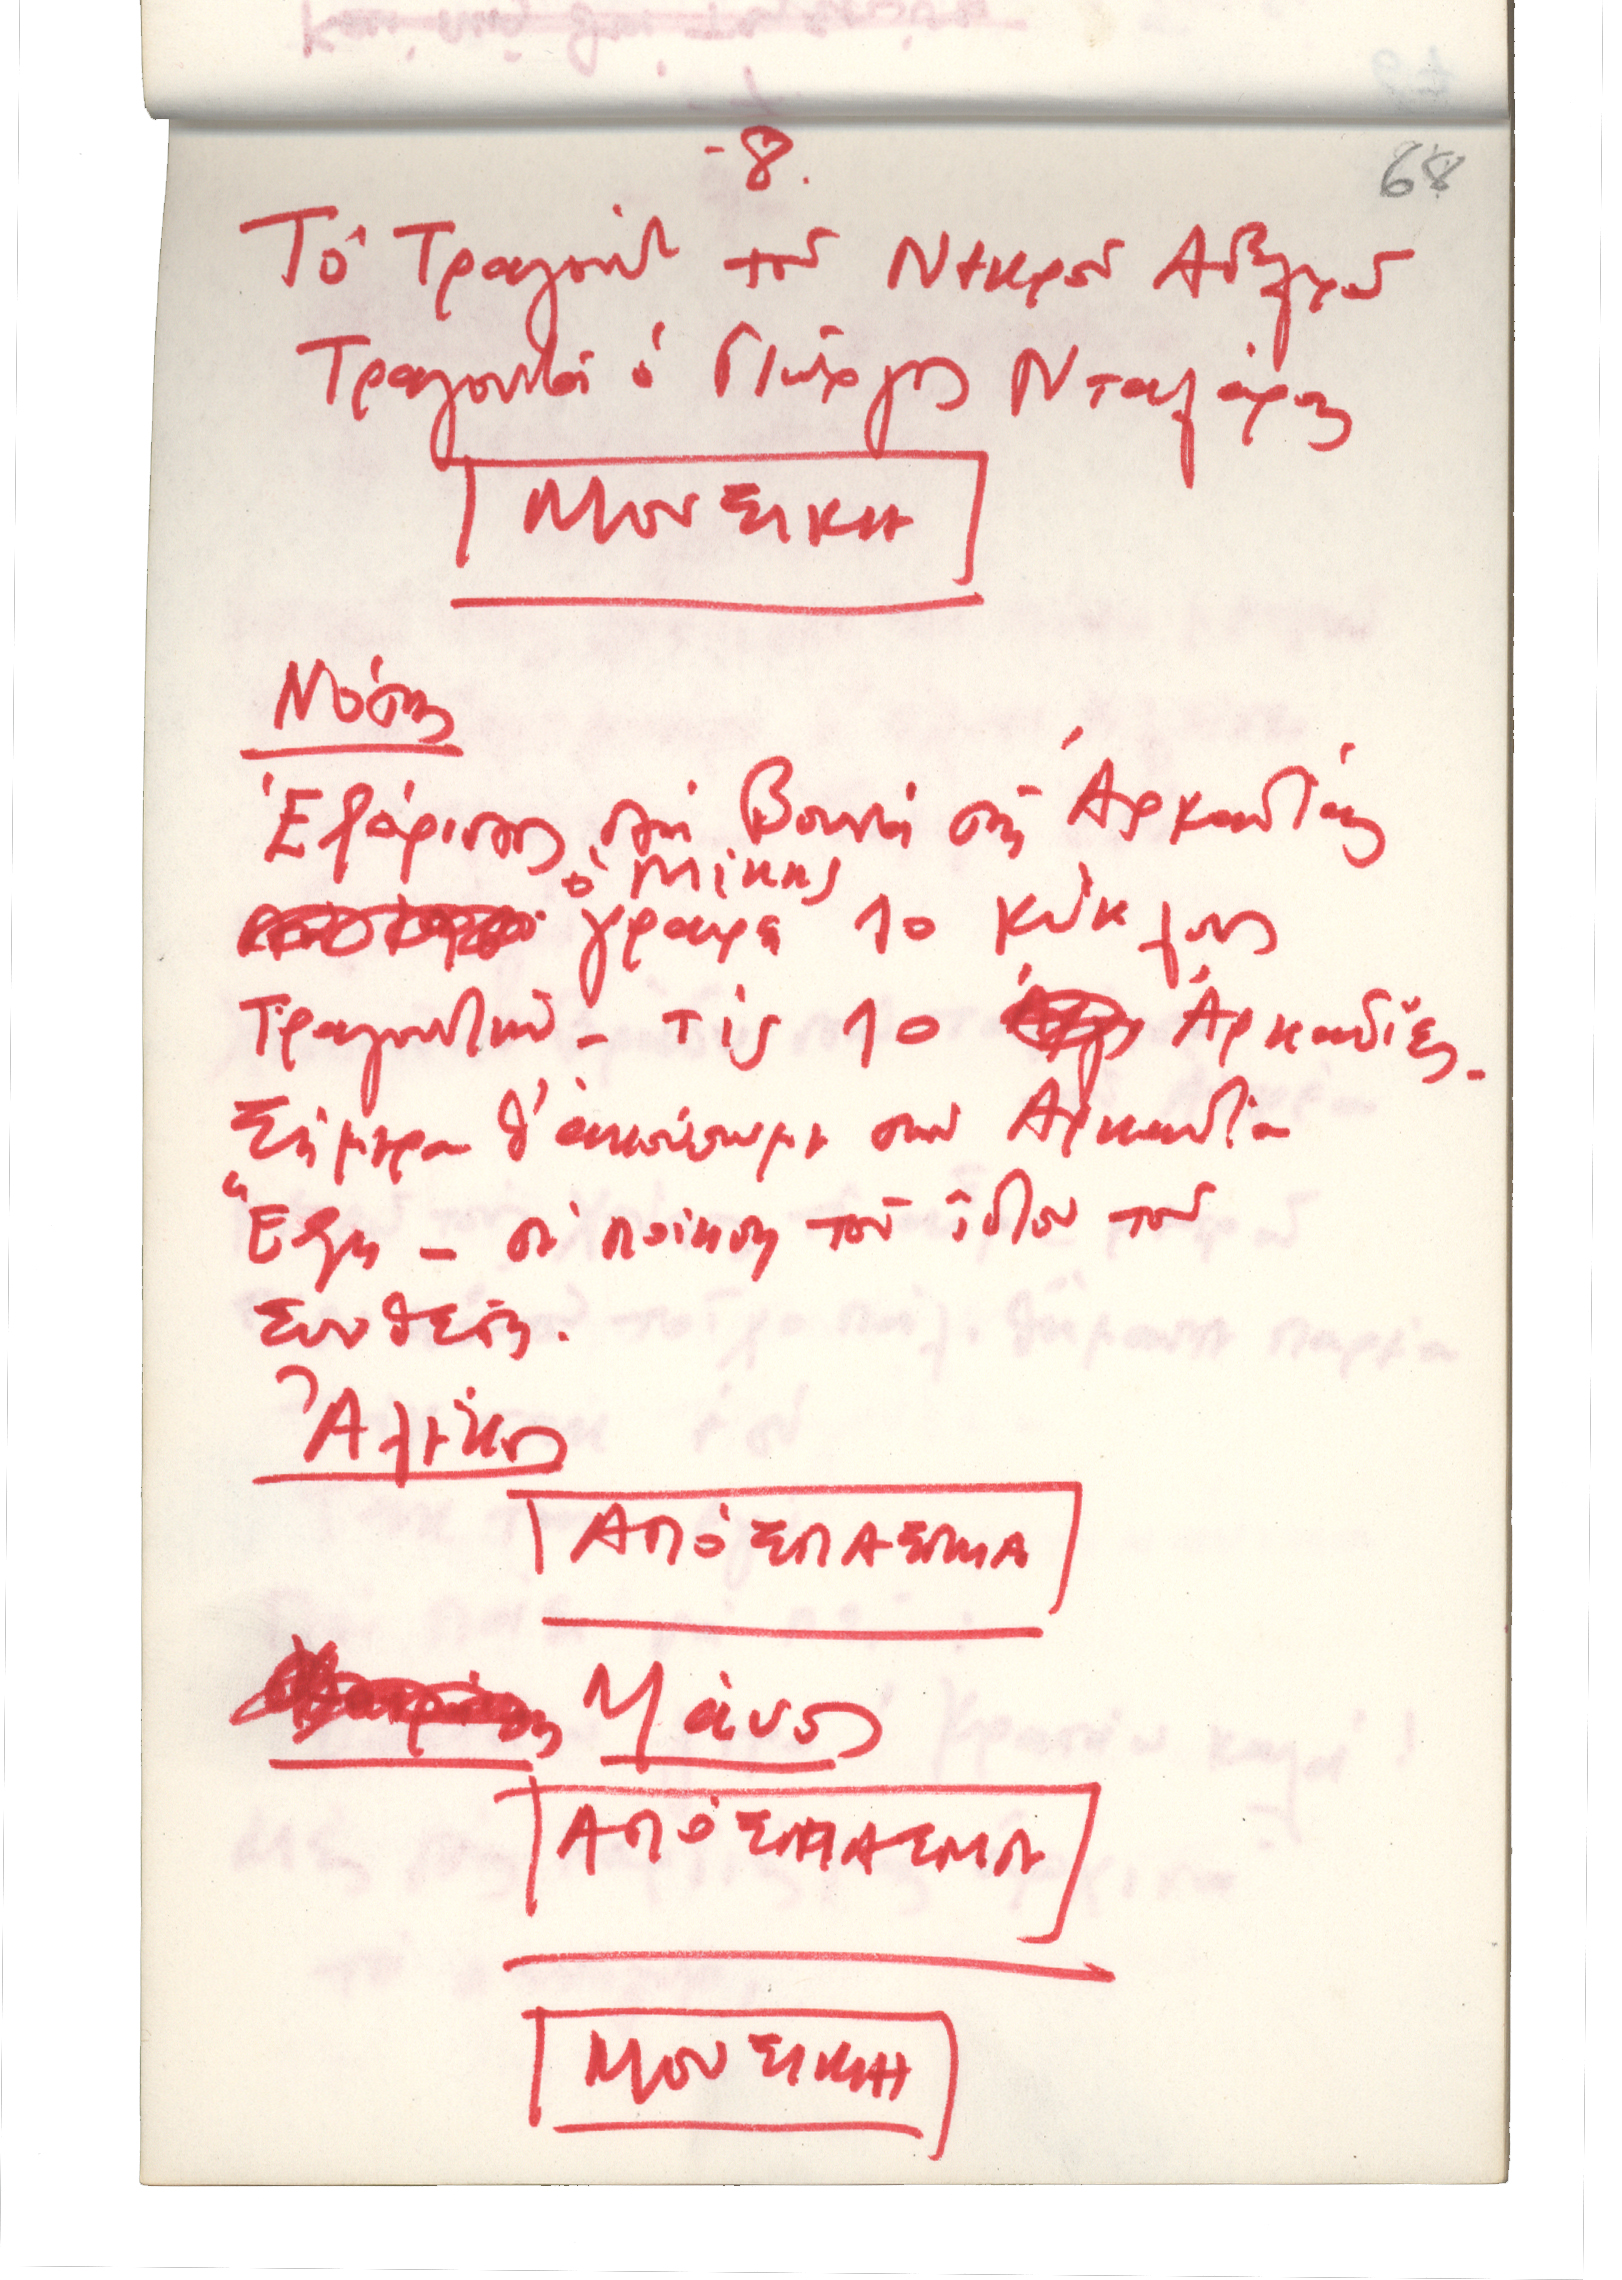 -8.
68
Τό Τραγούδι τοῦ Νεκροῦ Αδελφοῦ
Τραγουδᾶ ὁ Γιῶργος Νταλάρας
ΜΟΥΣΙΚΗ
Νότης
Ἐξόριστος στά Βουνά τῆς Ἀρκαδίας
ὁ Μίκης
γραψε 10 κύκλους
Τραγουδιῶν - τίς 10 Ἀρκαδίες -
Σήμερα θ' ἀκούσουμε στην Αρκαδία
Έξη - σέ ποίηση τοῦ ἴδιου τοῦ
Συνθέτη.
Ἀλέκος
ΑΠΟΣΠΑΣΜΑ
Μάνος
ΑΠΟΣΠΑΣΜΑ
ΜΟΥΣΙΚΗ